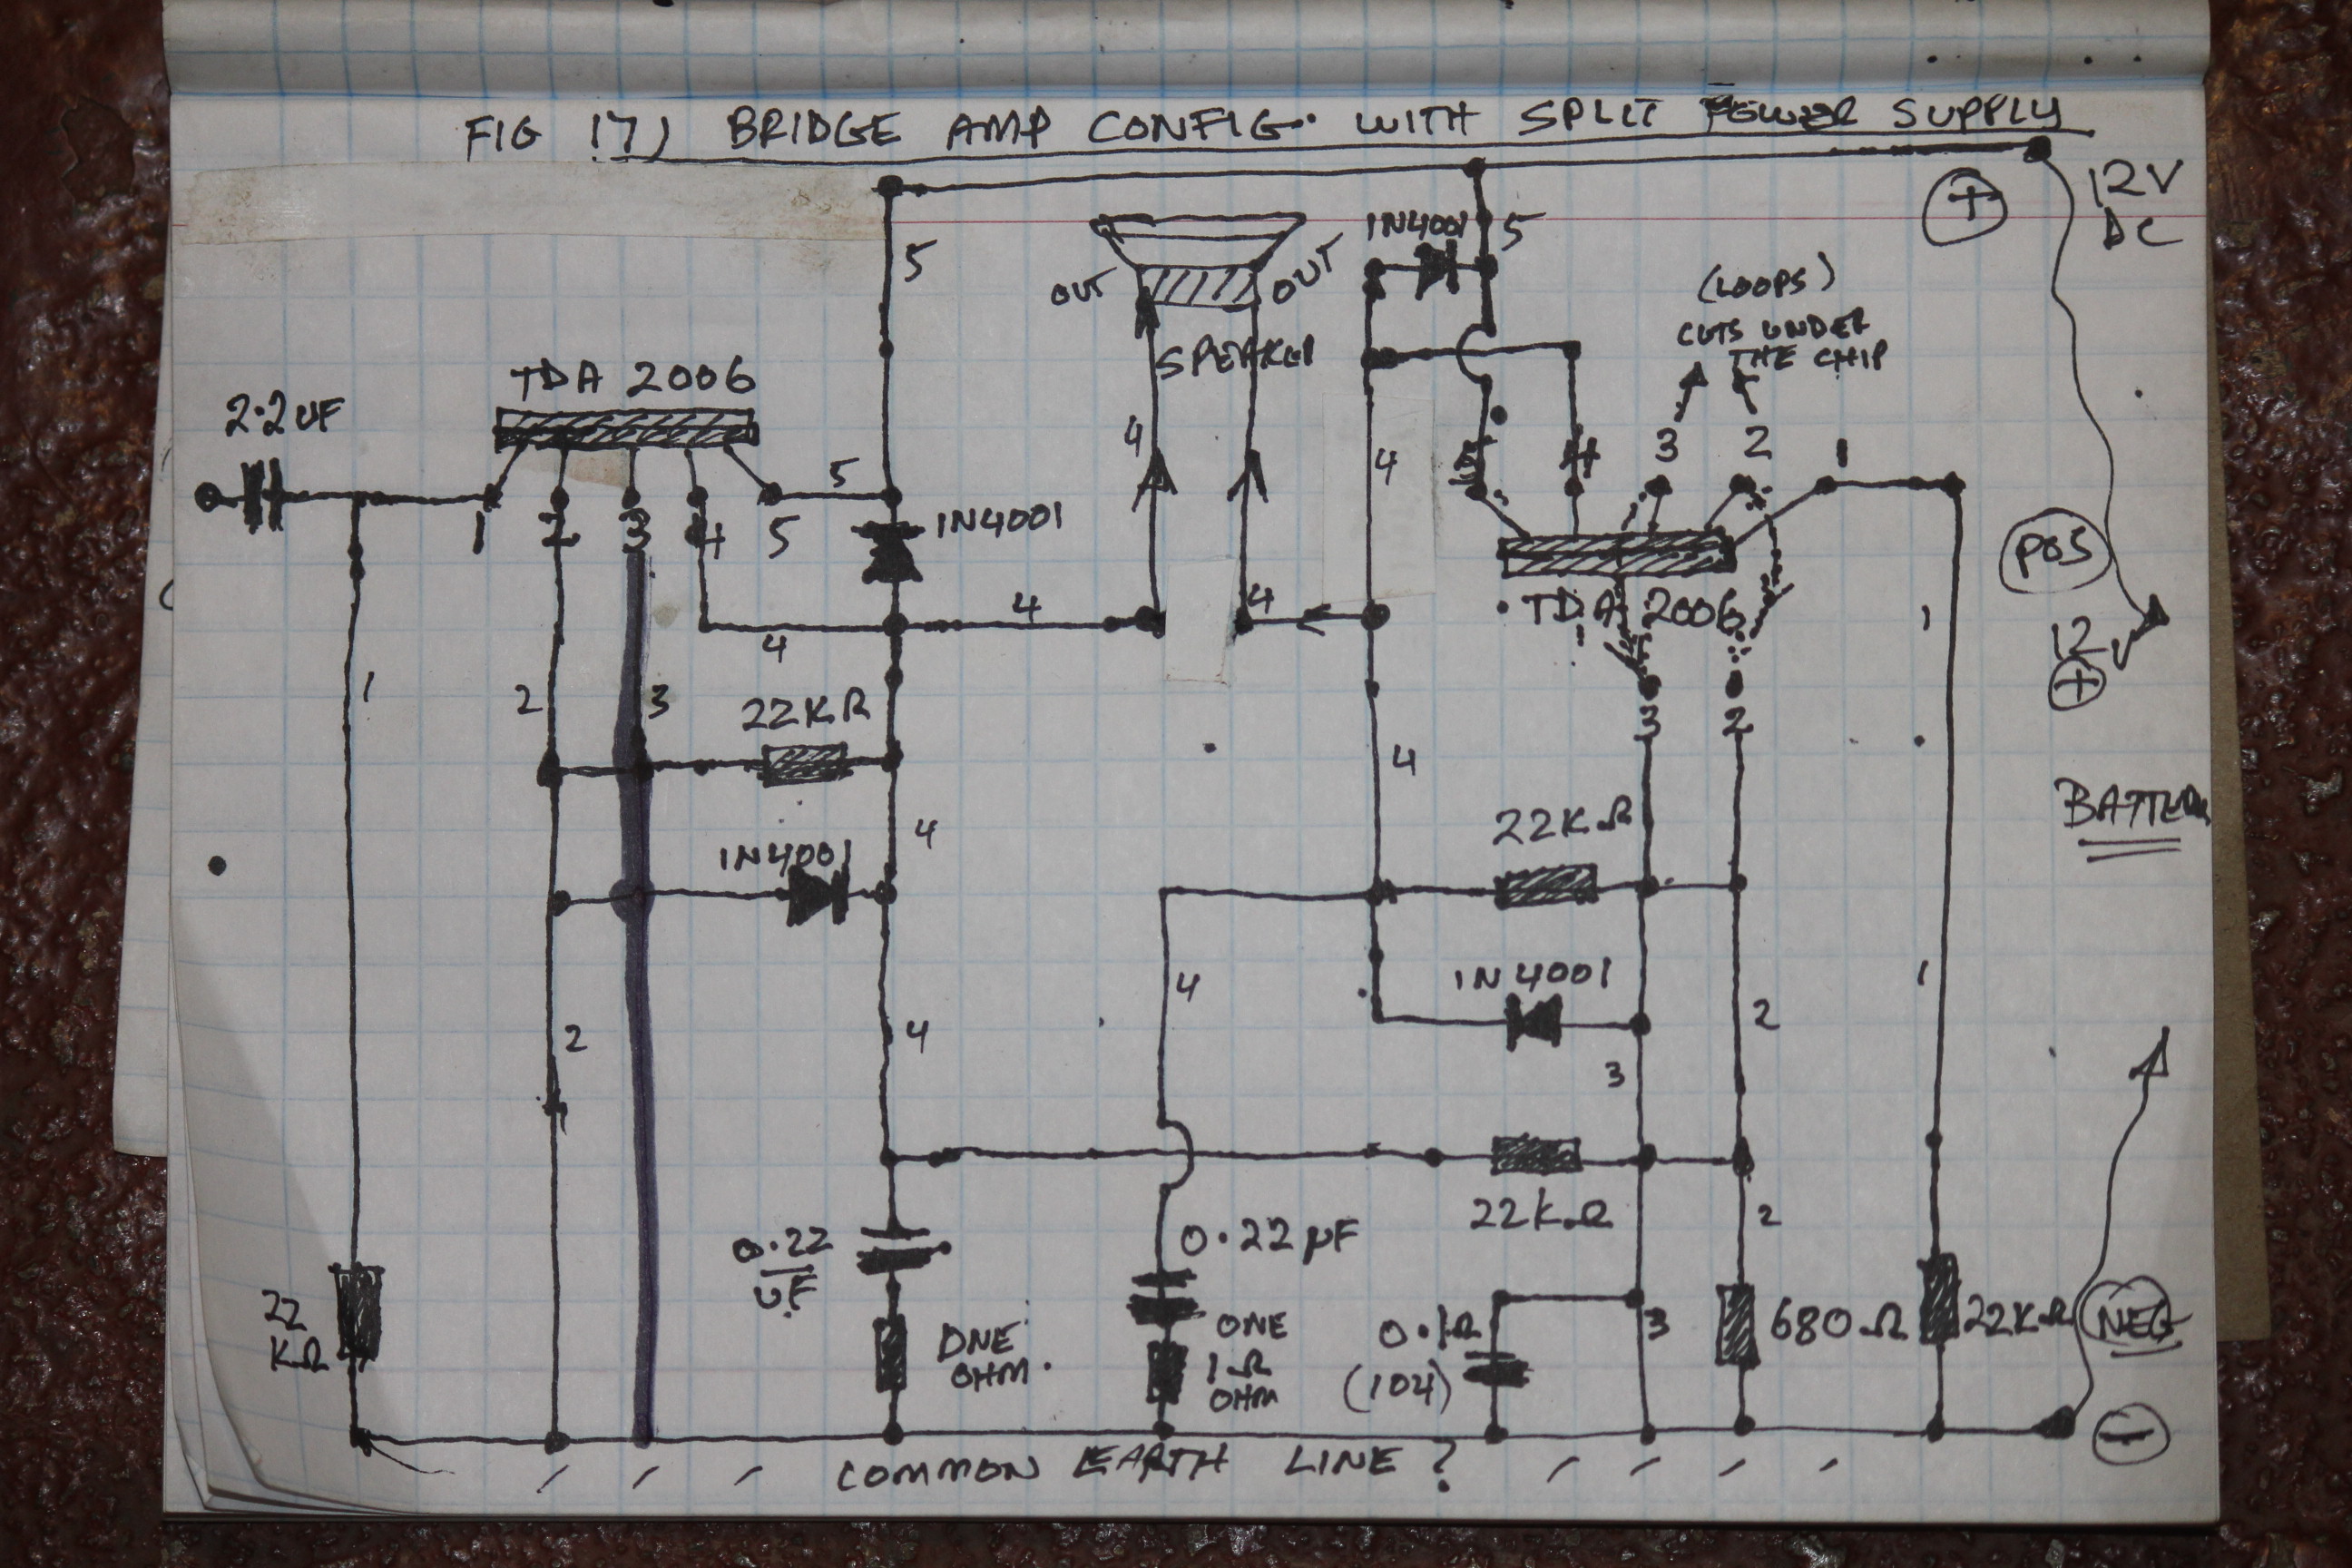 FIG 17) BRIDGE AMP CONFIG. WITH SPLIT POWER SUPPLY
+
12V
DC
5
1N4001
5
OUT
OUT
(LOOPS)
CUTS UNDER
THE CHIP
SPEAKER
TDA 2006
2.2UF
4
4
5
4
3
2
1
5
1
2
3
4
5
1N4001
POS
TDA 2006
4
4
4
1
12V
+
1
2
3
22KΩ
3
2
4
BATTERY
22KΩ
4
1N4001
1N4001
4
1
2
4
2
3
22KΩ
2
0.22
UF
0.22 µF
22
KΩ
ONE
OHM.
ONE
1Ω
OHM
0.1Ω
(104)
3
680Ω
22KΩ
NEG
−
COMMON EARTH LINE ?